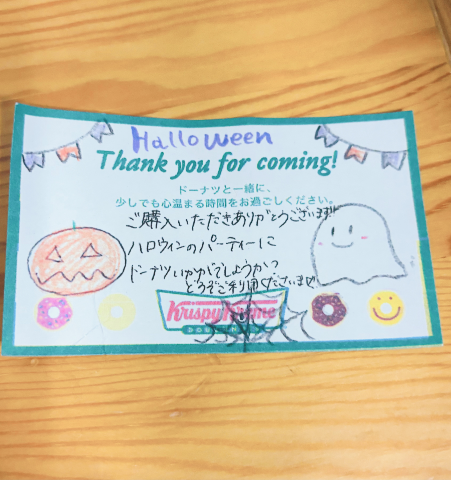 Halloween
Thank you for coming!
ドーナツと一緒に、
少しでも心温まる時間をお過ごしください。
ご購入いただきありがとうございます!!
ハロウィンのパーティーに
ドーナツいかがでしょうか?
どうぞご利用くださいませ
Krispy Kreme